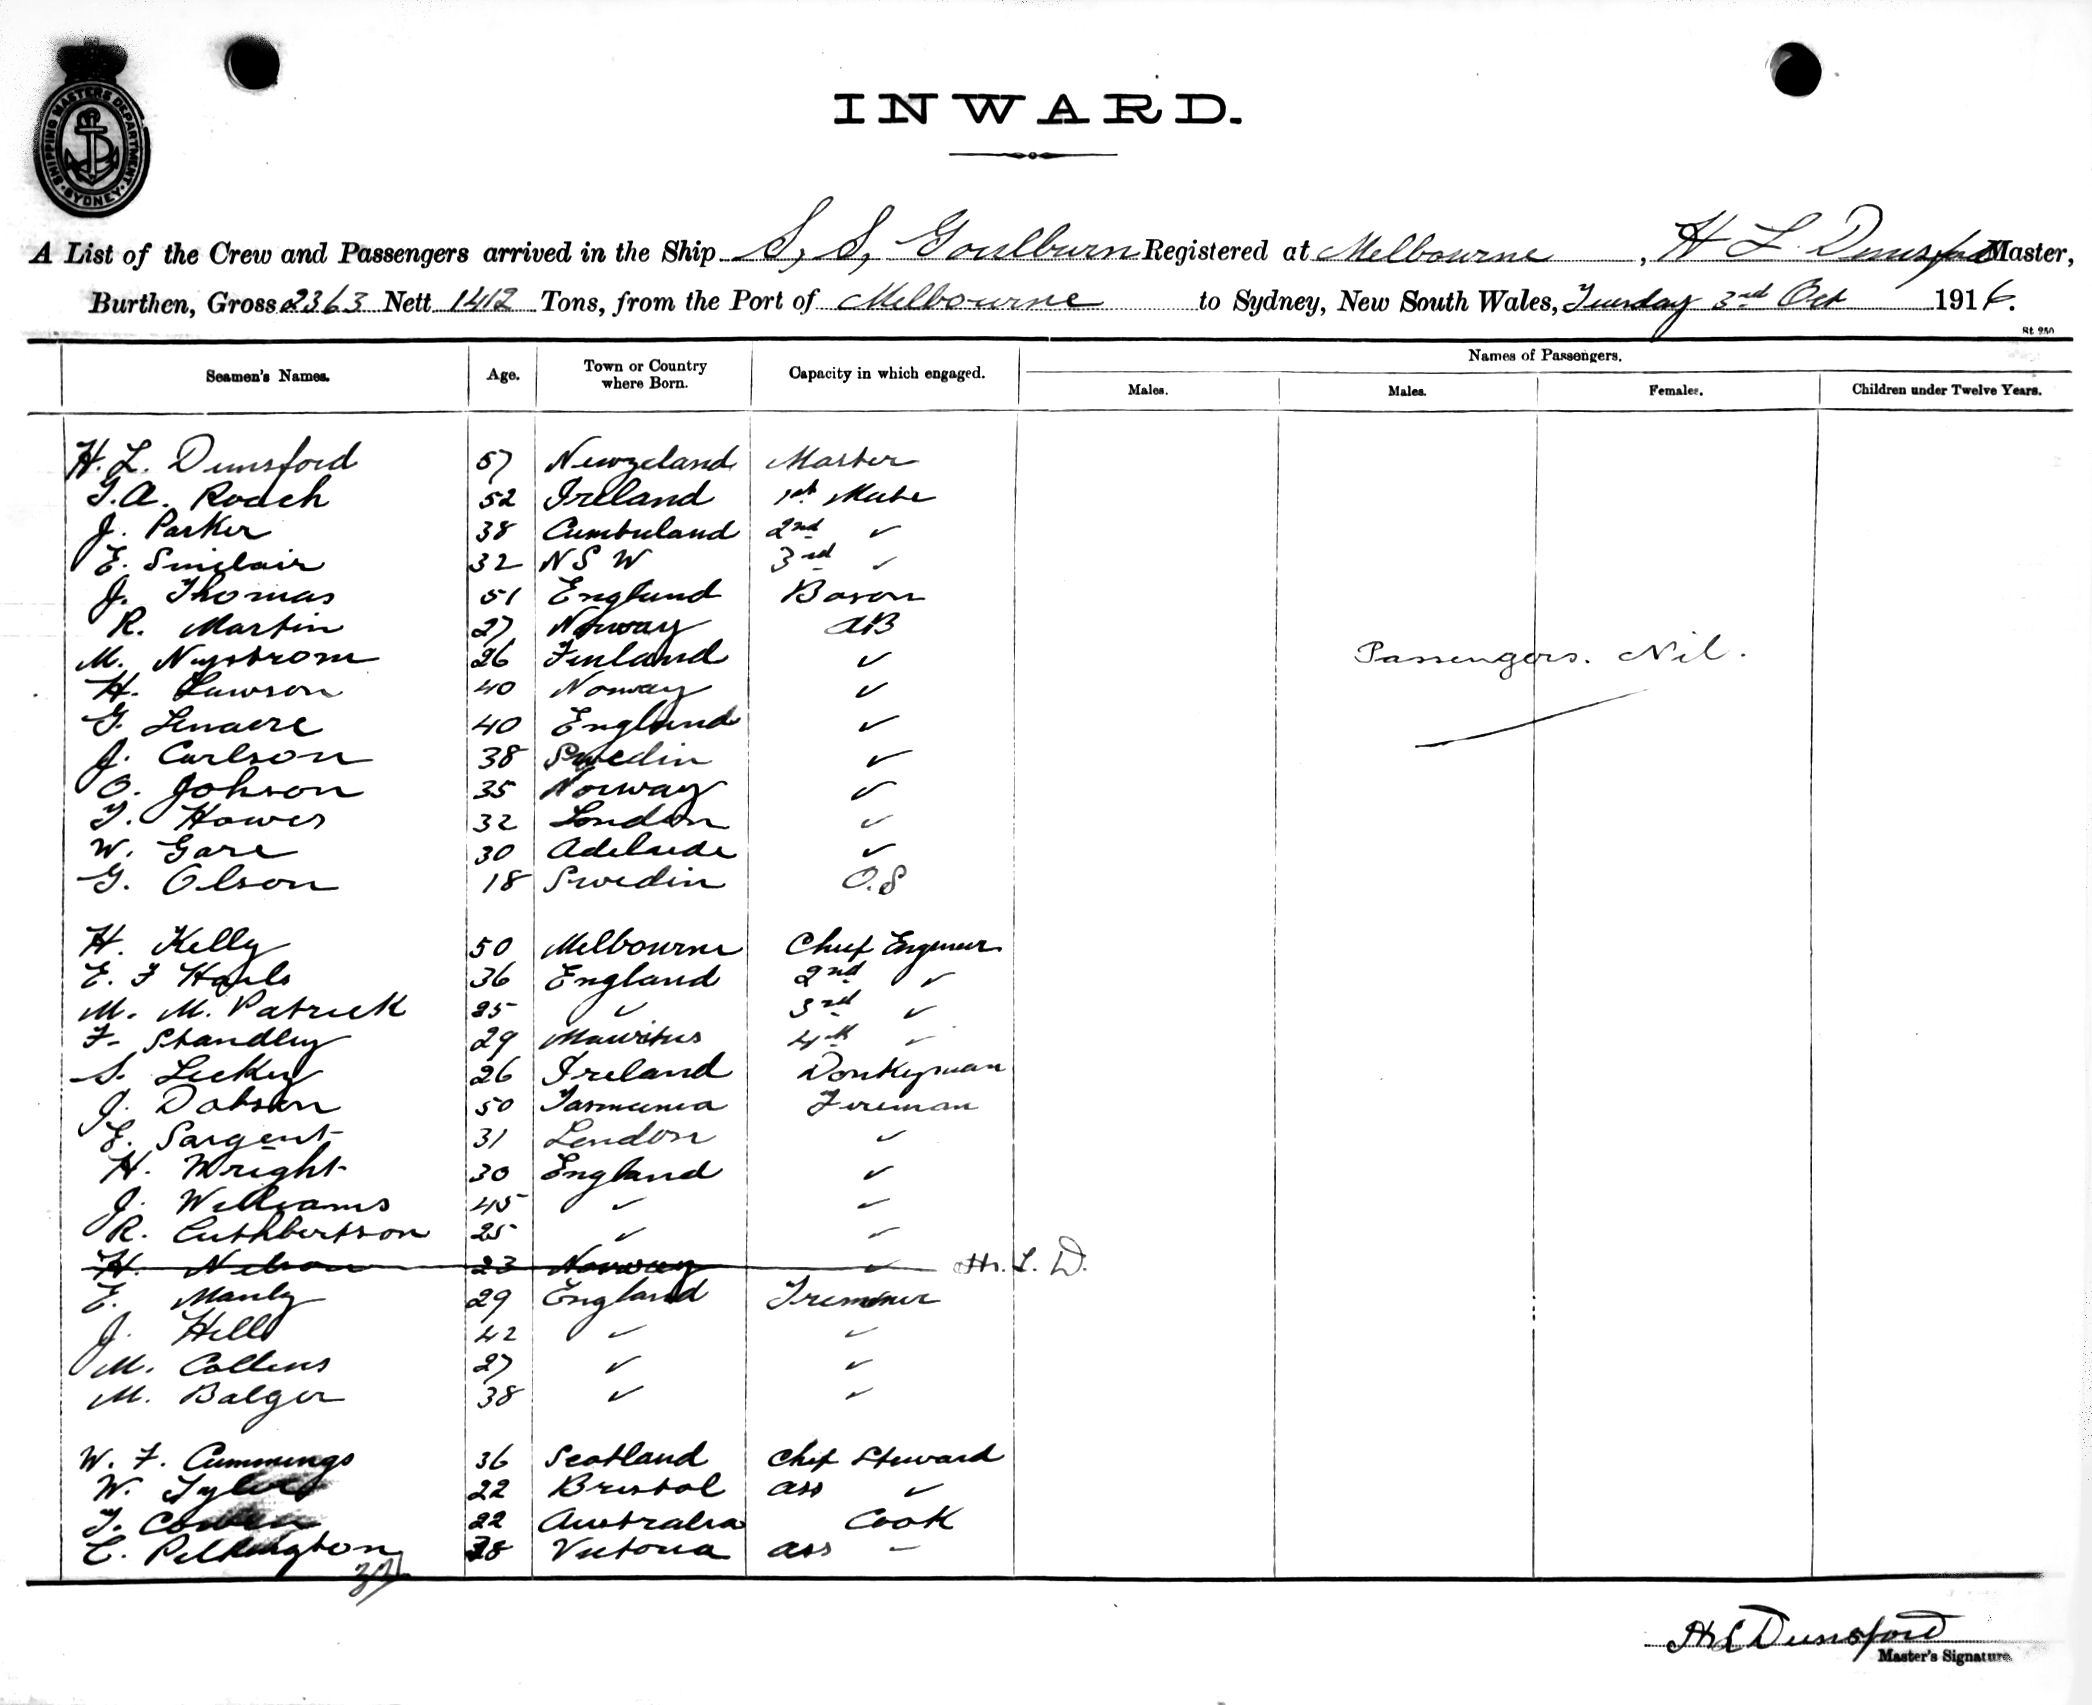 SHIPPING MASTERS DEPARTMENT
SYDNEY
INWARD.
A List of the Crew and Passengers arrived in the Ship S, S, Goulburn Registered at Melbourne, H L. Dunsford Master,
Burthen, Gross 2363 Nett 1412 Tons, from the Port of Melbourne to Sydney, New South Wales, Tuesday 3rd Oct 1916.
St 950
Seamen's Names. Age. Town or Country where Born. Capacity in which engaged. Names of Passengers.
Males. Males. Females. Children under Twelve Years.
H. L. Dunsford 57 Newzeland Master
T. A. Roach 52 Ireland 1st Mate
J. Parker 38 Cumberland 2nd ✓
E. Sinclair 32 N S W 3rd ✓
J. Thomas 51 England Boson
R. Martin 27 Norway AB
M. Nystrom 26 Finland ✓
Passengers. Nil.
H. Lawson 40 Norway ✓
G. 40 England ✓
J. Carlson 38 Swedin ✓
O. Johson 35 Norway ✓
T. Howes 32 London ✓
W. Gare 30 Adelaide ✓
G. Olson 18 Swedin O.S
H. Kelly 50 Melbourne Chief Engineer
E. F 36 England 2nd ✓
M. M. Patrick 25 ✓ 3rd ✓
F. Standley 29 Mauritus 4th ✓
S. Leckey 26 Ireland Donkeyman
J. Dobson 50 Tasmania Fireman
E. Sargent 31 London ✓
H. Wright 30 England ✓
J. Williams 45 ✓ ✓
R. Cuthbertson 25 ✓ ✓
H. Nelson 23 Norway ✓ H. L. D.
E. Manly 29 England Tremmer
J. Hill 42 ✓ ✓
M. Collins 27 ✓ ✓
M. Balger 38 ✓ ✓
W. F. Cummings 36 Scotland Chef Steward
W. Tyler 22 Bristol ass ✓
T. Cowen 22 Australia Cook
C. Pilkington 38 Victoria ass -
32
H L Dunsford
Master's Signature.